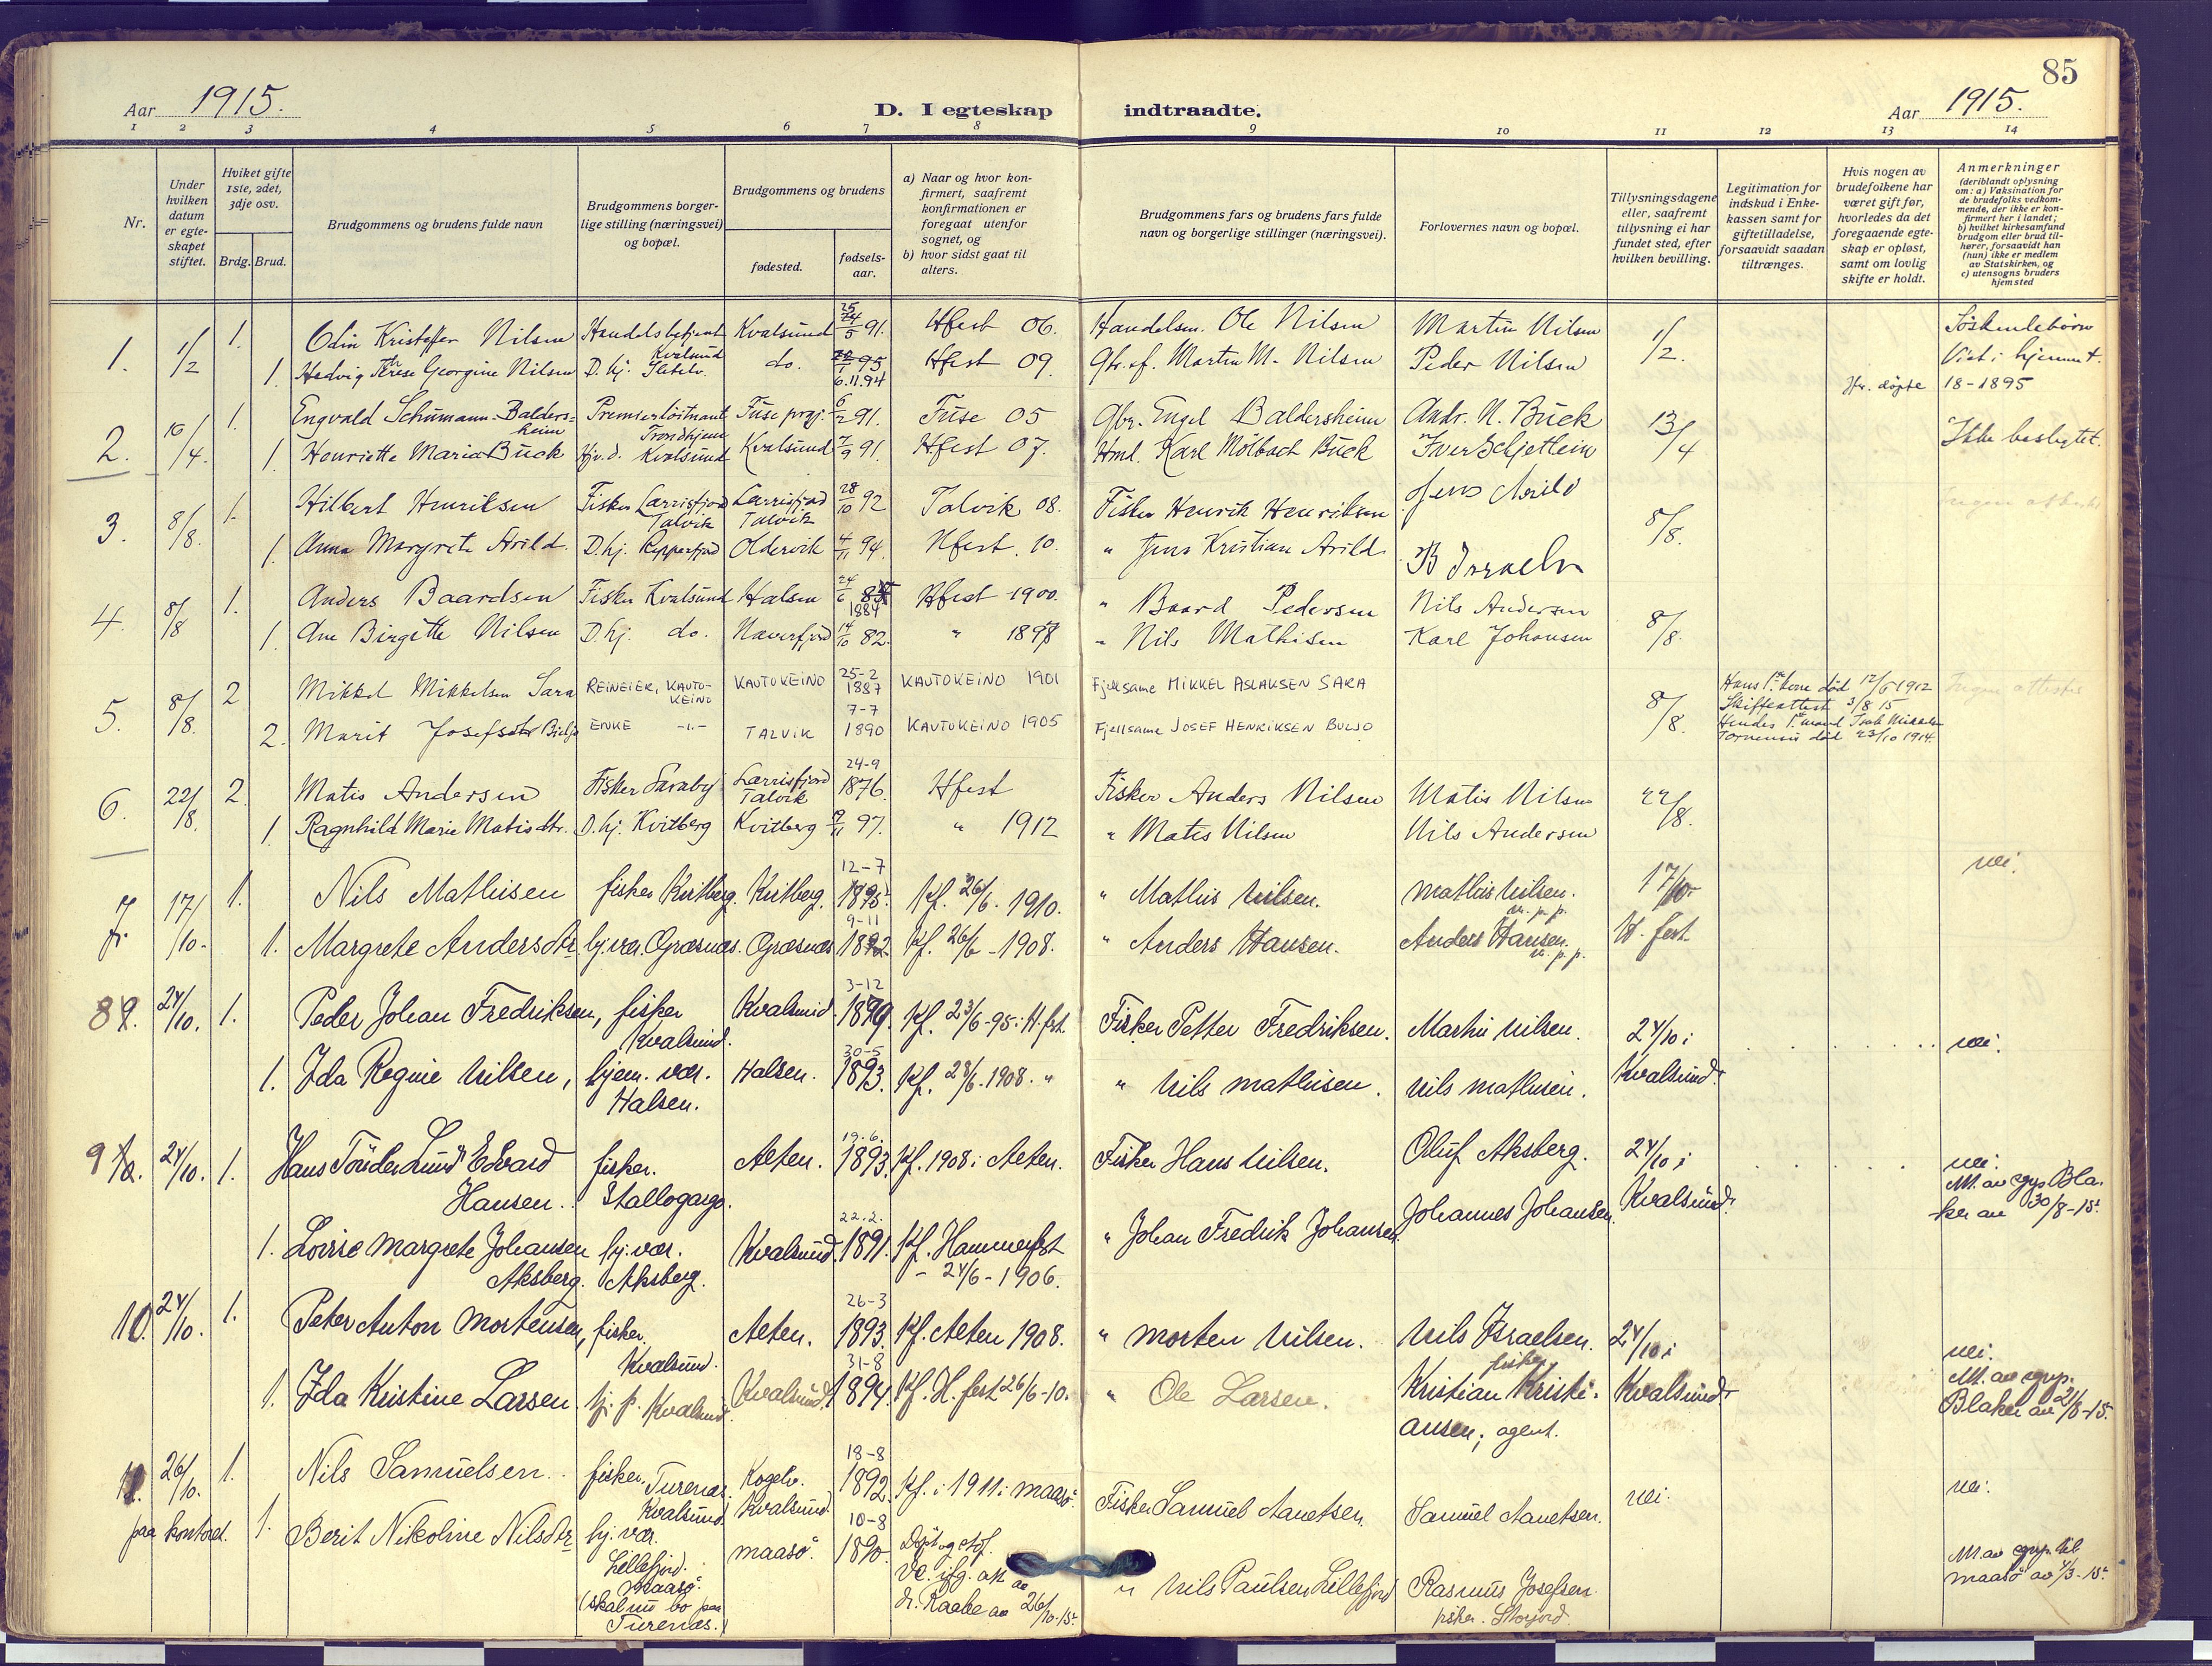 85
Aar 1915.
D. I egteskap indtraadte.
Aar 1915.
1 2 3 4 5 6 7 8 9 10 11 12 13 14
Nr.
Under hvilken datum er egte-skapet stiftet.
Hviket gifte 1ste, 2det, 3dje osv.
Brdg. Brud.
Brudgommens og brudens fulde navn
Brudgommens borger-lige stilling (næringsvei) og bopæl.
Brudgommens og brudens
fødested.
fødsels-aar.
a) Naar og hvor kon-firmert, saafremt konfirmationen er foregaat utenfor sognet, og
b) hvor sidst gaat til alters.
Brudgommens fars og brudens fars fulde navn og borgerlige stillinger (næringsvei).
Forlovernes navn og bopæl.
Tillysningsdagene eller, saafremt tillysning ei har fundet sted, efter hvilken bevilling.
Legitimation for indskud i Enke-kassen samt for giftetilladelse, forsaavidt saadan tiltrænges.
Hvis nogen av brudefolkene har været gift før, hvorledes da det foregaaende egte-skap er opløst, samt om lovlig skifte er holdt.
Anmerkninger
(deriblandt oplysning om: a) Vaksination for de brudefolks vedkom-mende, der ikke er kon-firmert her i landet; b) hvilket kirkesamfund brudgom eller brud til-hører, forsaavidt han (hun) ikke er medlem av Statskirken, og c) utensogns bruders hjemsted
1. 1/2 1. Odin Kristoffer Nilsen Handelsbetjent Kvalsund Kvalsund 25/5 91. Hfest 06. Handelsm. Ole Nilsen Martin Nilsen 1/2. Søskendebørn
1. Hedvig Therese Georgine Nilsen D. hj. do. 95 6.11.94 Hfest 09. Martin M. Nilsen Peder Nilsen Viet i hjemmet.
døpte 18-1895
2. 16/4. 1. Engvald Schumann Balders-heim Premierløitnant Trondhjem Fuse prgj. 6/2 91. Fuse 05 Gbr. Engel Baldersheim Andr. N. Buck 13/4 Ikke beslegtet.
1. Henriette Maria Buck Kvalsund Kvalsund 7/9 91. Hfest 07. Hml. Karl Mølbach Buck Iver Schjetlein
3. 8/8. 1. Hilbert Henriksen Fisker Lerrisfjord Talvik Lerrisfjord Talvik 28/10 92 Talvik 08. Fisker Henrik Henriksen Jens Arild 8/8.
1. Anna Margrete Arild. D. hj. Repparfjord Oldervik 4/11 94. Hfest. 10. " Jens Kristian Arild
4. 8/8 1. Anders Baardsen Fisker Kvalsund Halsen 24/6 1884 Hfest 1900. " Baard Pedersen Nils Andersen 8/8.
1. Ane Birgitte Nilsen D. hj. do. Naverfjord 14/10 82. " 1898 " Nils Mathisen Karl Johansen
5. 8/8. 2 Mikkel Mikkelsen Sara REINEIER, KAUTO-KEINO KAUTOKEINO 25-2 1887 KAUTOKEINO 1901 Fjellsame MIKKEL ASLAKSEN SARA 8/8. Hans 1ste kone død 12/6 1912
Skifteattest 3/8 15
2. Marit Josefsdtr ENKE -"- TALVIK 7-7 1890 KAUTOKEINO 1905 Fjellsame JOSEF HENRIKSEN BULJO Hendes 1ste mand Isak Mikkelsen
død 23/10 1914.
6. 22/8. 2. Matis Andersen Fisker Saraby Lerrisfjord Talvik 24-9 1876. Hfest Fisker Anders Nilsen Matis Nilsen 22/8.
1. Ragnhild Marie Matisdtr. D. hj. Kvitberg Kvitberg 9/11 97. " 1912 " Matis Nilsen Nils Andersen
7. 17/10. 1. Nils Mathisen fisker Kvitberg. Kvitberg. 12-7 1895. Kf. 26/6. 1910. " Mathis Nilsen. Mathis Nilsen. 17/10 nei.
1. Margrete Andersdtr. hj. vær. Græsnæs. Græsnæs 9-11 1892 Kf. 26/6 - 1908. " Anders Hansen. Anders Hansen. H. fest
8. 24/10. 1. Peder Johan Fredriksen, fisker Kvalsund. Kvalsund 3-12 1879. Kf. 23/6-95 i H. fest. Fisker Petter Fredriksen. Martin Nilsen. 24/10 i Kvalsund. nei.
1. Ida Regine Nilsen, hjem. vær. Halsen. Halsen. 30-5 1893. Kf. 28/6. 1908. " " Nils Mathisen. Nils Mathisen.
9. 24/10. 1. Hans Tønder Lund Edvard Hansen. fisker. Stallogargo. Alten. 19.6. 1893. Kf. 1908 i Alten. Fisker Hans Nilsen. Oluf Aksberg. 24/10 i Kvalsund. nei.
M. av sgpr. Bla-ker av 30/8-15.
1. Lovise Margrete Johansen Aksberg. hj. vær. Aksberg. Kvalsund. 22.2. 1891. Kf. Hammerfest - 24/6 - 1906. " Johan Fredrik Johansen. Johannes Johansen.
10. 24/10. 1. Peter Anton Mortensen, fisker. Kvalsund. Alten. 26-3 1893. Kf. Alten 1908. " Morten Nilsen. Nils Israelsen. fisker 24/10 i Kvalsund nei.
1. Ida Kristine Larsen. hj. p. Kvalsund. Kvalsund. 31-8 1894. Kf. H. fest 26/6-10. " Ole Larsen. Kristian Kristi-ansen, agent. M. av sgpr. Blaker av 21/8-15.
11. 26/10. 1. Nils Samuelsen. fisker, Turenæs. Kvalsund Kvalsund. 18-8 1892. Kf. i 1911 i Maasø. Fisker Samuel Aanetsen. Samuel Aanetsen. nei. nei.
paa kontoret. 1. Berit Nikoline Nilsdtr hj. vær. Lillefjord. Maasø. (skal nu bo paa Turenæs.) Maasø. 10-8 1890. Døpt og
dr. Raabe av 26/10-15. " Nils Paulsen Lillefjord Rasmus Josefsen. fisker. M. av
Maasø av 4/3-15.